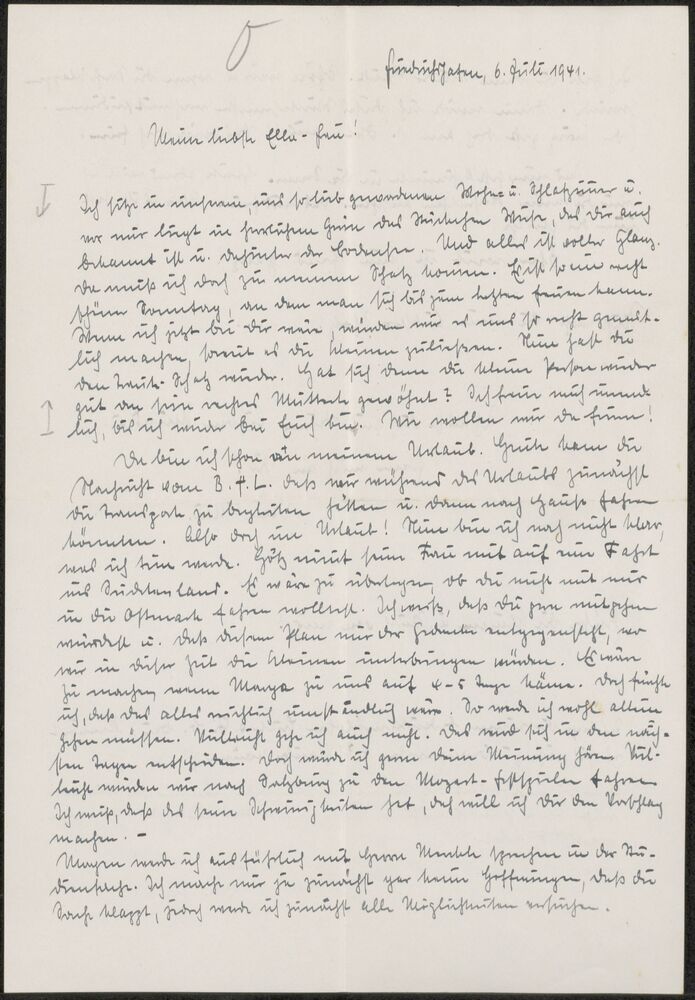 Friedrichshafen, 6. Juli 1941.
Meine liebste Ella-Frau!
Ich sitze in unserem, uns so lieb gewordenen Wohn- u. Schlafzimmer u.
vor mir liegt im herrlichen Grün das Stückchen Wiese, das Dir auch
bekannt ist u. dahinter der Bodensee. Und alles ist voller Glanz.
Da muß ich doch zu meinem Schatz kommen. Es ist so ein recht
schöner Sonntag, an dem man sich bis zum letzten freuen kann.
Wenn ich jetzt bei Dir wäre, würden wir es uns so recht gemüt-
lich machen, soweit es die Kleinen zuließen. Nun hast Du
den Schatz wieder. Hat sich denn die kleine Person wieder
gut an sein rechtes Mutterle gewöhnt? Ich freue mich unend-
lich, bis ich wieder bei Euch bin. Wir wollen wir da feiern!
Da bin ich schon an meinem Urlaub. Heute kam die
Nachricht vom B.f.L. daß wir während des Urlaubs zunächst
die Transporte zu begleiten hätten u. dann nach Hause fahren
könnten. Also doch im Urlaub! Nun bin ich noch nicht klar,
was ich tun werde. Götz nimmt seine Frau mit auf eine Fahrt
ins Sudetenland. Es wäre zu überlegen, ob Du nicht mit mir
in die Ostmark fahren wolltest. Ich weiß, daß Du gern mitgehen
würdest u. daß diesem Plan nur der Gedanke entgegensteht, wo
wir in dieser Zeit die Kleinen unterbringen würden. Es wäre
zu machen, wenn zu uns auf 4-5 Tage käme. Doch fürchte
ich, daß das alles reichlich umständlich wäre. So werde ich wohl allein
gehen müssen. Vielleicht gehe ich auch nicht. Das wird sich in den näch-
sten Tagen entscheiden. Doch würde ich gern Deine Meinung hören. Viel-
leicht würden wir nach Salzburg zu den Mozart-Festspielen fahren.
Ich weiß, daß das seine Schwierigkeiten hat, doch will ich Dir den Vorschlag
machen. -
Morgen werde ich ausführlich mit Herrn sprechen in der Stu-
diensache. Ich mache mir ja zunächst gar keine Hoffnungen, daß die
Sache klappt, jedoch werde ich zunächst alle Möglichkeiten versuchen.